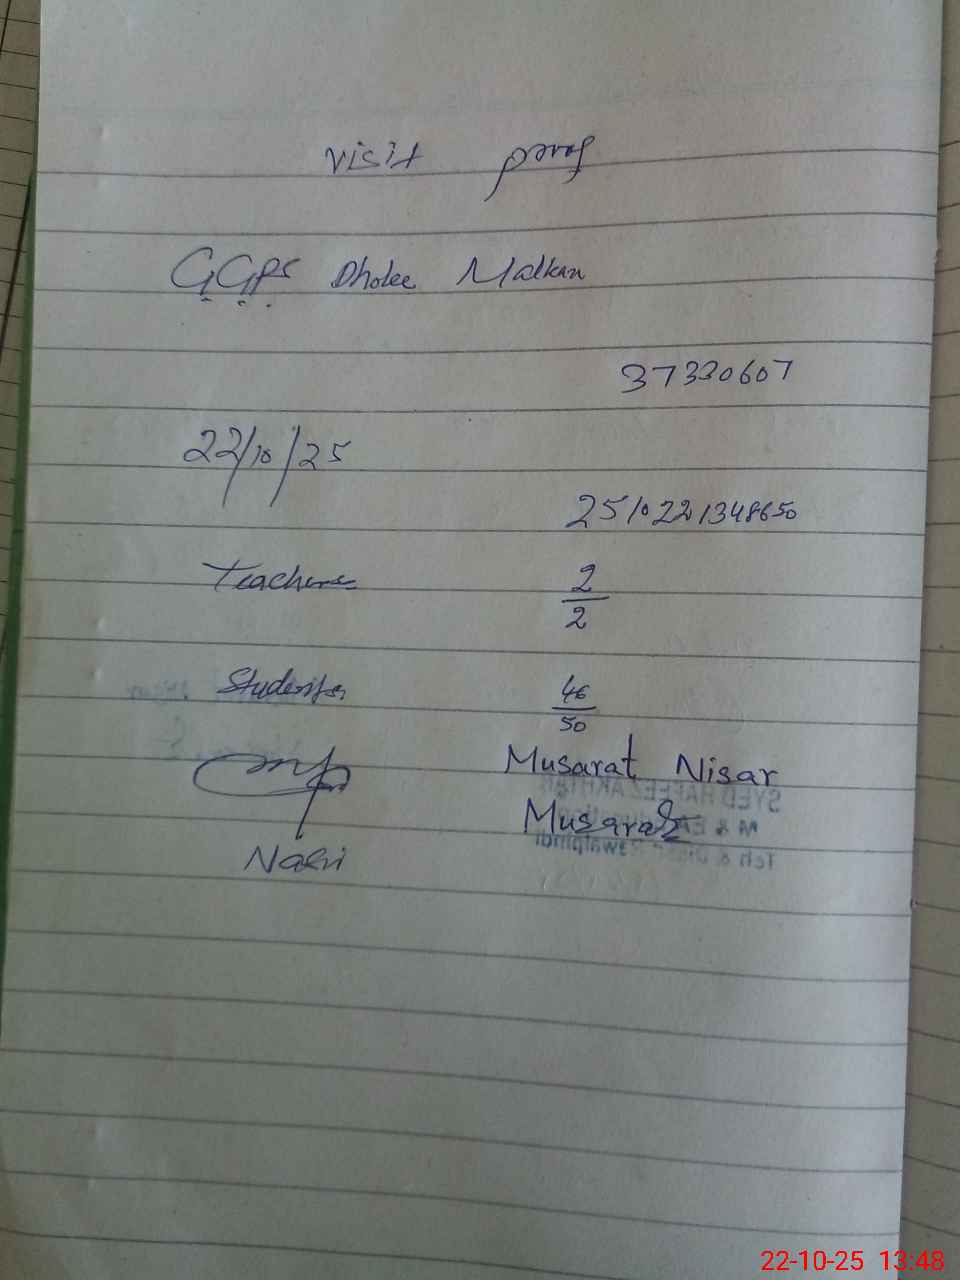 visit proof
GGPS Dhoke Malkan
37330607
22/10/25
2510221348650
Teachers 2/2
Students 46/50
Musarat Nisar
Musarat
SYED HAFEEZ AKHTAR
Teh & Distt Rawalpindi
22-10-25 13:48